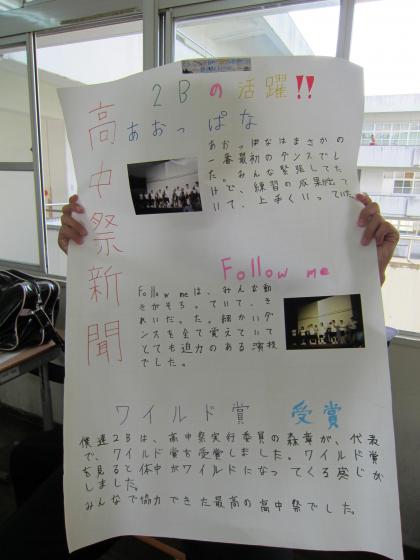 2Bの活躍!!
高中祭新聞
あおっぱな
あおっぱなはまさかの
一番最初のダンスでし
た。みんな緊張してた
けど、練習の成果出て
いて、上手くいってた
Follow me
Follow meは、みんな動
きがそろっていて、き
れいだった。細かいダ
ンスを全て覚えていて
とても迫力のある演技
でした。
ワイルド賞 受賞
僕達2Bは、高中祭実行委員の森章が、代表
で、ワイルド賞を受賞しました。ワイルド賞
を見ると体中がワイルドになってくる感じが
しました。
みんなで協力できた最高の高中祭でした。